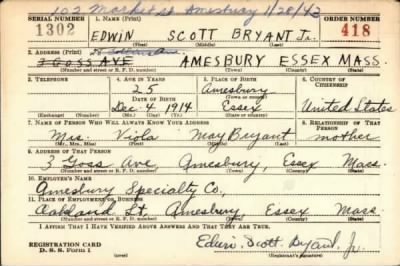 102 Market St Amesbury 1/28/42
SERIAL NUMBER 1. NAME (Print) ORDER NUMBER
1302 EDWIN SCOTT BRYANT Jr. 418
(First) (Middle) (Last)
2. ADDRESS (Print)
3 GOSS AVE AMESBURY ESSEX MASS.
(Number and street or R. F. D. number) (Town) (County) (State)
3. TELEPHONE 4. AGE IN YEARS 5. PLACE OF BIRTH 6. COUNTRY OF CITIZENSHIP
25 Amesbury
DATE OF BIRTH (Town or county)
Dec. 4 1914 Essex United States
(Exchange) (Number) (Mo.) (Day) (Yr.) (State or country)
7. NAME OF PERSON WHO WILL ALWAYS KNOW YOUR ADDRESS 8. RELATIONSHIP OF THAT PERSON
Mrs. Viola May Bryant mother
(Mr., Mrs., Miss) (First) (Middle) (Last)
9. ADDRESS OF THAT PERSON
3 Goss Ave Amesbury, Essex Mass.
(Number and street or R. F. D. number) (Town) (County) (State)
10. EMPLOYER'S NAME
Amesbury Specialty Co,
11. PLACE OF EMPLOYMENT OR BUSINESS
Oakland St, Amesbury, Essex Mass
(Number and street or R. F. D. number) (Town) (County) (State)
I AFFIRM THAT I HAVE VERIFIED ABOVE ANSWERS AND THAT THEY ARE TRUE.
REGISTRATION CARD
D. S. S. FORM 1 Edwin Scott Bryant, Jr.
(Registrant's signature)